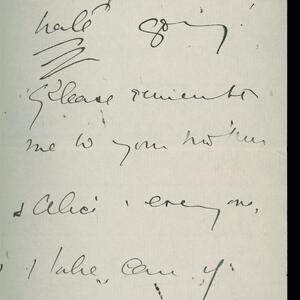 hate going.
Please remember
me to your mother
& Alice & everyone.
& take care of